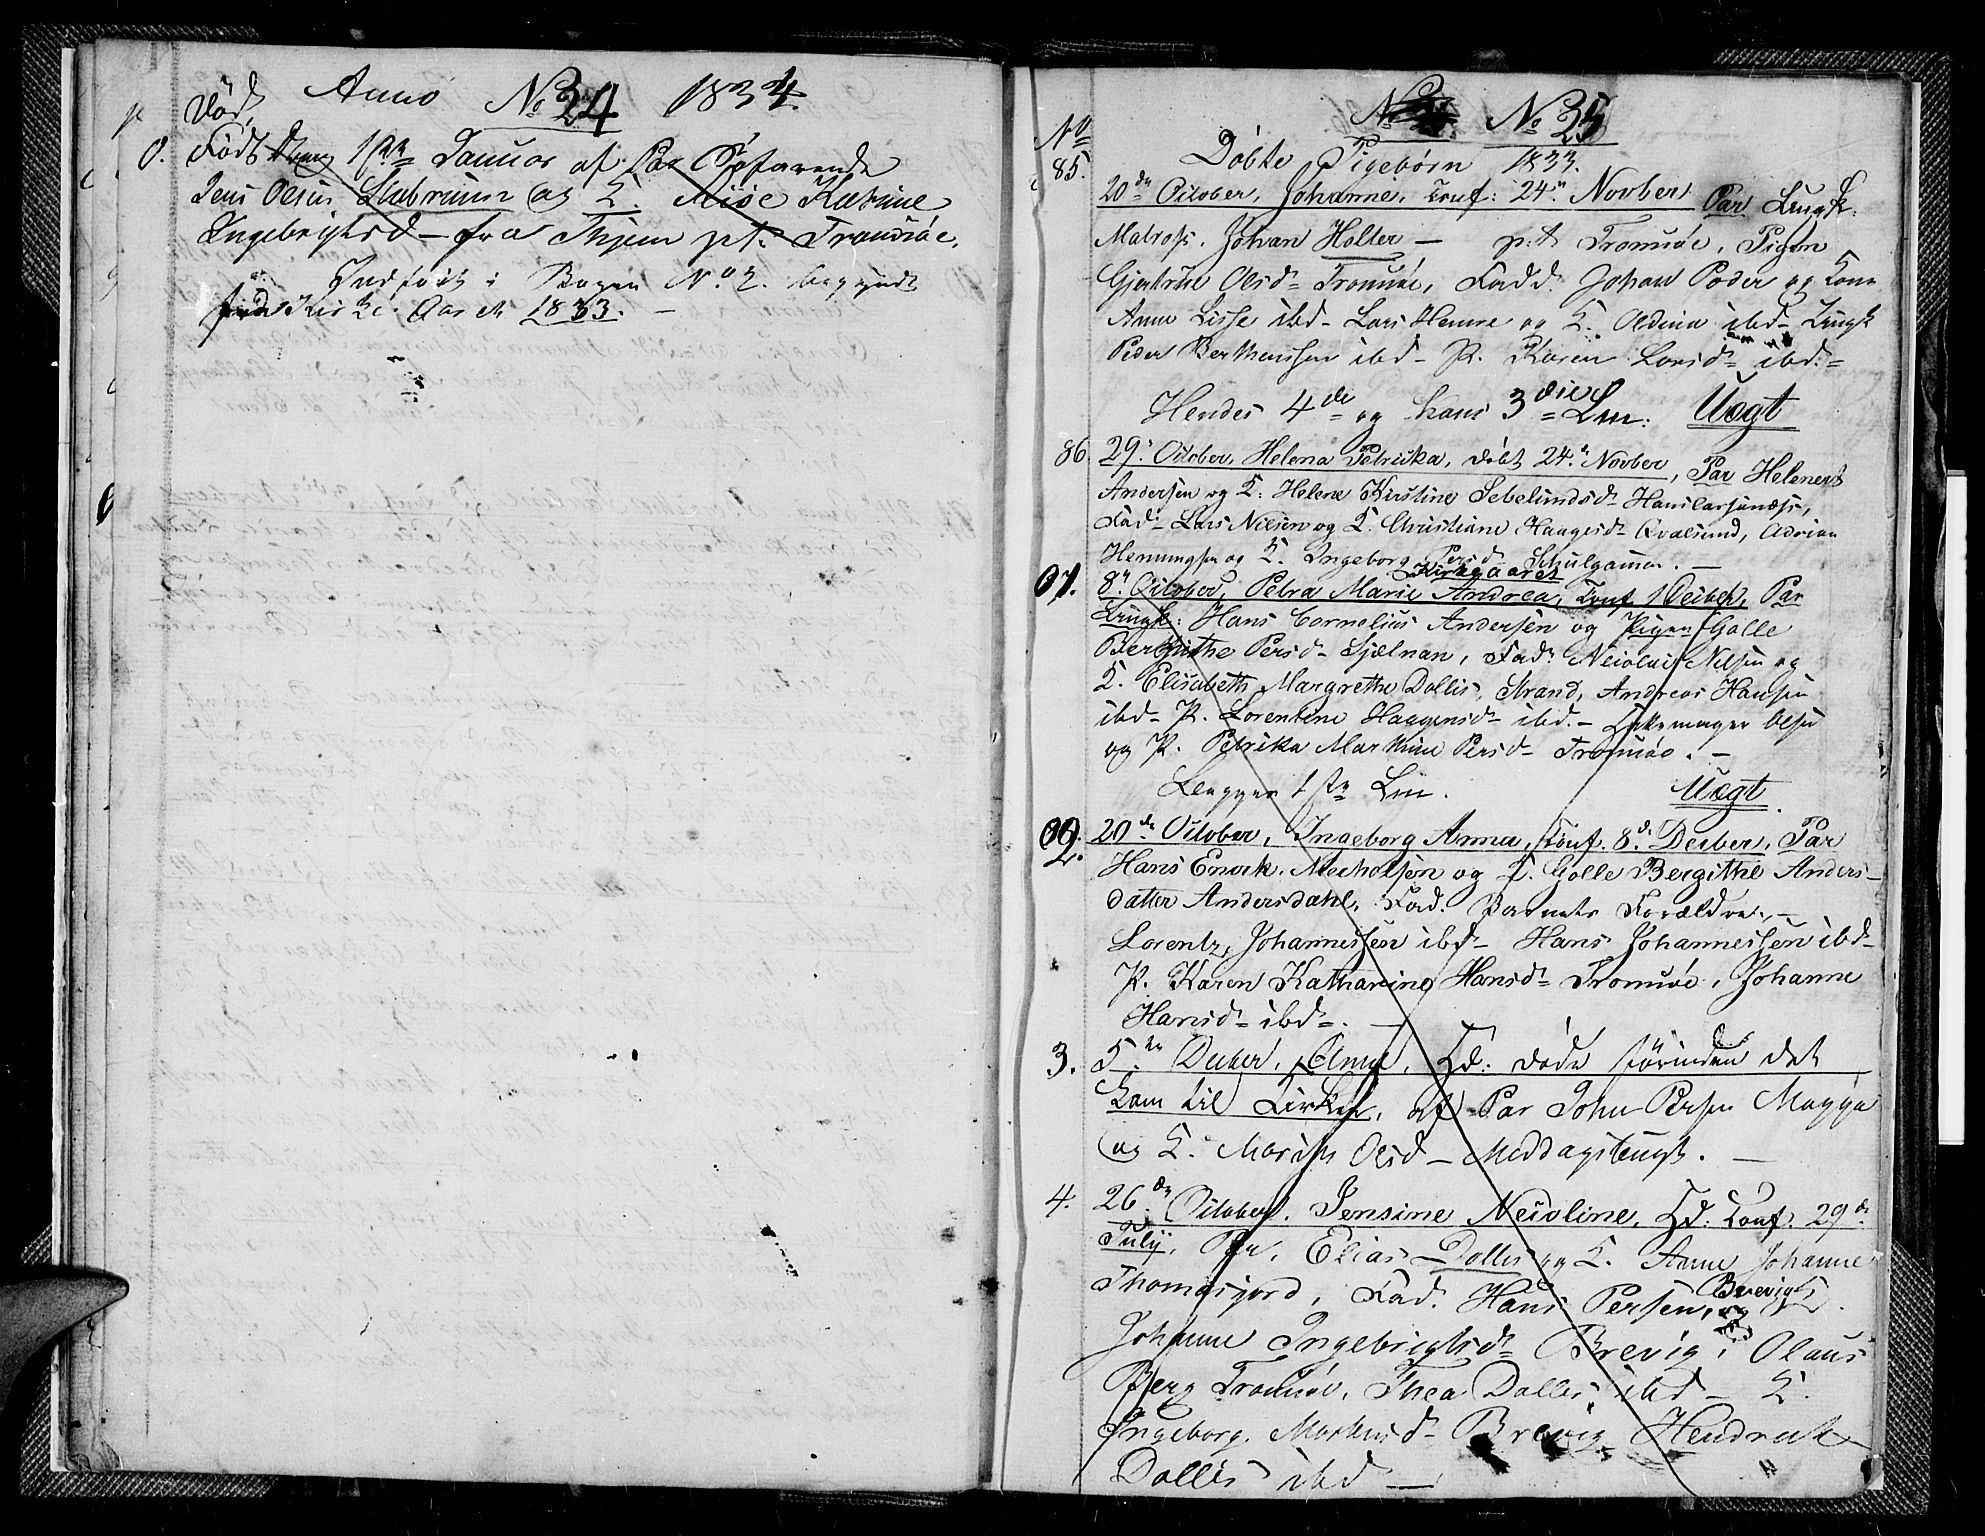 Anno No 34 1834.
død,
0. Født 1ste Januar af Par Søfarende
Jens Olsen Slabrum og K. Katrine
Ingebrigtsd– fra pt. Tromsøe.
Indført i Bogen No 2. begyndt
Aaret 1833. –
No 35
No Døbte Pigebørn 1833.
85. 20de October, Johanne, Conf: 24n Novber Par Ungk:
Matros. Johan Holter – p.t Tromsøe, Pigen
Gjertrue Olsd= Tromsøe, Fadd. Johan Peder og Kone
Anne Lisse ibd– Lars Hemre og K. Oldina ibd– Ungk
Peder Berthenssen ibd– P. Karen Larsd= ibd.=
Hendes 4de og hans 3die Lm: Uægt
86 29. October, Helena Petricka, døbt 24.n Novber, Par Helenert
Andersen og K: Helene Kirstine Sebelundsd.
Fad– Lars Nilsen og K. Christiane Haagesd– Qvalsund, Adrian
Henningsen og K. Ingeborg Persd. –
Kirkegaaret
07. 8n October, Petra Marie Andrea, Conf 1 Decber, Par
Ungk: Hans Cornelius Andersen og Pigen Golle
Bergithe Persd– Sjælnan, Fad. Neiolai Nilsen og
K. Elisabeth Margrethe Dollis, Strand, Andreas Hansen
ibd– P. Lorentine Haagensd– ibd.– Olsen
og P. Petrika Marthine Persd– Tromsøe. –
Begges 1ste Lm. Uægt.
2. 20de October, Ingeborg Anna, Conf. 8.d Decber, Par
Hans Enok. Mecholsen og K. Golle Bergithe Anders–
datter Andersdahl, Fad. Barnets Forældre, –
Lorentz, Johannessen ibd– Hans Johannessen ibd–
P. Karen Katharine Hansd= Tromsøe, Johanne
Hansd= ibd=. –
3. 5.te Decber, Anne, Hd: døde förinden det
kom til Kirken, af Par John Persen Magga
og K. Marith Olsd– Meddagstungt. –
4. 26de October. Jensine Neioline, Hd. Conf. 29de
Julij, Par, Elias Dollis og K. Anne Johanne
Thomasjord, Fad. Hans Persen, Brevigs og
Johanne Ingebrigtsd= Brevig, Olaus
Berg Tromsøe, Thea Dollis ibd– K.
Ingeborg Markusd– Brevig, Hendrech
Dollis ibd –